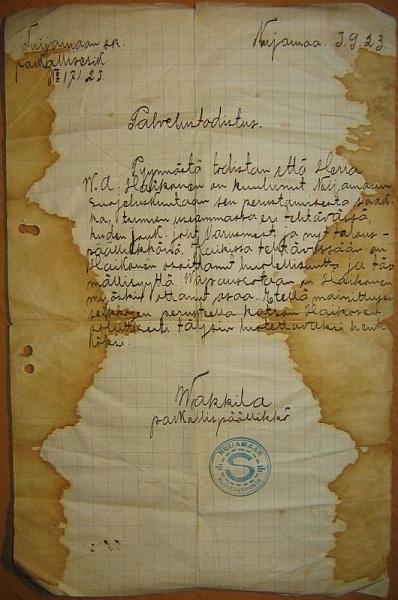 Nuijamaan sk.
paikallisesik.
№ 171.23.
Nuijamaa. 3.9.23.
Palvelustodistus.
Pyynnöstä todistan että Herra
W. A. Haikonen on kuulunut Nuijamaan
Suojeluskuntaan sen perustamisesta saak-
ka, toimien useammassa eri tehtävässä,
kuten jouk. joht. varusmest. ja nyt talous-
päällikkönä. Kaikissa tehtävissään on
Haikonen osoittanut huolellisuutta ja täs-
mällisyyttä. Wapaussotaan on Haikonen
myöskin ottanut osaa. Edellä mainittujen
seikkojen perustella katson Haikosen
poliittisesti täysin luotettavaksi hen-
löksi.
Wakkila
paikallispäällikkö
NUIJAMAAN
S
SUOJELUSKUNTA